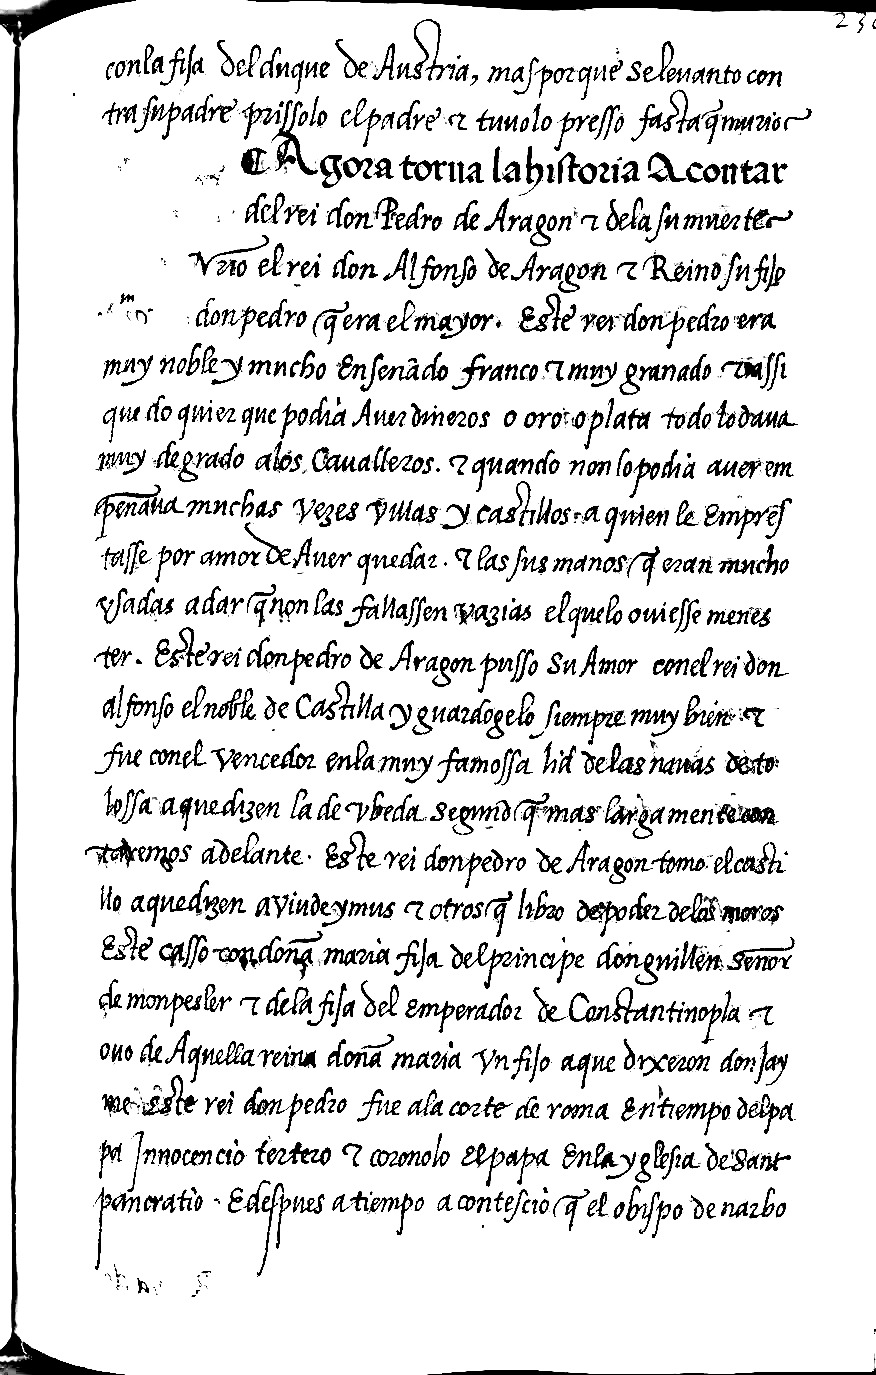 conla fija del duque de Austria, mas porque se levanto con
tra su padre prissolo el padre τ tuuolo presso fasta q̃ murio
¶ Agora torna la historia A contar
del rei don Pedro de Aragon τ dela su muerte
Vrio el rei don Alfonso de Aragon τ Reino su fijo
don pedro q̃ era el mayor. Este rei don pedro era
muy noble y mucho Ensenãdo franco τ muy granado τ assi
que do quier que podia Auer dineros o oro o plata todo lo daua
muy de grado alos Cavalleros. τ quando non lo podia auer em
penãua muchas vezes villas y castillos a quien le Empres
tasse por amor de Auer que dar. τ las sus manos q̃ eran mucho
vsadas a dar q̃ non las fallassen vazias el quelo ouiesse menes
ter. Este rei don pedro de Aragon pusso su Amor conel rei don
alfonso el noble de Castilla y guardogelo siempre muy bien τ
fue conel vencedor enla muy famossa lid delas nauas de to
lossa a que dizen la de vbeda segund q̃ mas larga mente con
taremos adelante. Este rei don pedro de Aragon tomo el casti
llo a que dizen aviudeymus τ otros q̃ libro de poder delos moros
Este casso con doña maria fija del principe don guillen señor
de monpesler τ dela fija del emperador de Constantinopla τ
ouo de Aquella reina doña maria vn fijo a que dixeron don Jay
me Este rei don pedro fue ala corte de roma En tiempo del pa
pa Innocencio tertero τ coronolo El papa Enla yglesia de Sant
pancratio. E despues a tiempo a contescio q̃ el obispo de narbo